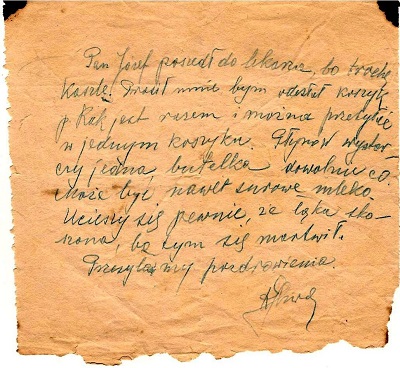 Pan Józef poszedł do lekarza, bo trochę
kaszle. Prosił mnie bym odesłał koszyk
p. Rak jest razem i można przesyłać
w jednym koszyku. Płynów wystar-
czy jedna, butelka dowolnie co.
Może być nawet surowe mleko.
Ucieszy się pewnie, że łąka sko-
szona, bo tym się martwił.
Przesyłamy pozdrowienia.